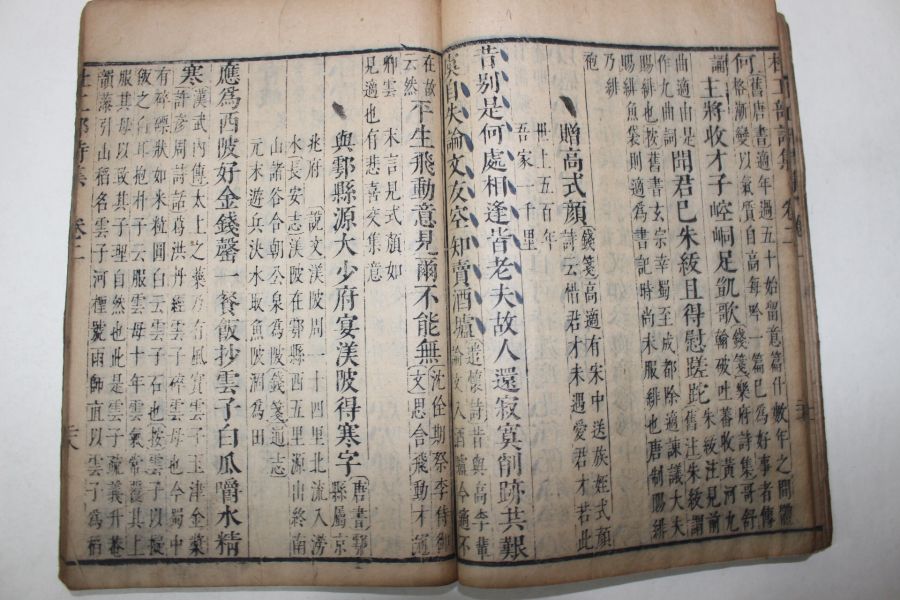 舊唐書適年過五十始留意篇什數年之間體
何格漸變以氣質自高每吟一篇已為好事者傳
誦主將收才子崆峒足凱歌
錢箋樂府詩集哥舒
翰破吐蕃收黃河九
曲適由是
作九曲詞
聞君已朱紱且得慰蹉跎
朱紱注見前
舊注朱紱謂
賜緋也按舊書玄宗幸蜀至成都除適諫議大夫
賜緋魚袋則適為書記時尚未服緋也唐制賜緋
乃服緋
袍
贈高式顏
錢箋高適有宋中送族姪式顏
詩云惜君才未遇愛君才若此
世上五百年
吾家一千里
昔別是何處相逢皆老夫故人還寂寞削跡共艱
虞自失論文友空知賣酒壚
遣懷詩昔與高李輩
論文入酒壚今適不
在故
云然
平生飛動意見爾不能無
沈佺期祭李侍御
文思合飛動才冠
卿雲 末言見式顏如
見適也有悲喜交集意
與鄠縣源大少府宴渼陂得寒字
唐書鄠
縣屬京
兆府 說文渼陂周一十四里北流入澇
水長安志渼陂在鄠縣西五里源出終南
山諸谷合朝公泉為陂錢箋通志
元末遊兵決水取魚陂涸為田
應爲西陂好金錢罄一餐飯抄雲子白瓜嚼水精
寒漢武內傳太上之藥乃有風實雲子玉津金漿
許彥周詩話葛洪丹經雲子碎雲母也今蜀中
有碎礫狀如米粒圓白云雲子石也按雲子以擬
飯之白耳抱朴子云服雲母十年雲氣常覆其上
服其母以致其子理自然也此是雲子疏義升菴
韻藻引山稻名雲子河檉號雨師直以雲子為稻
杜工部詩集 卷二